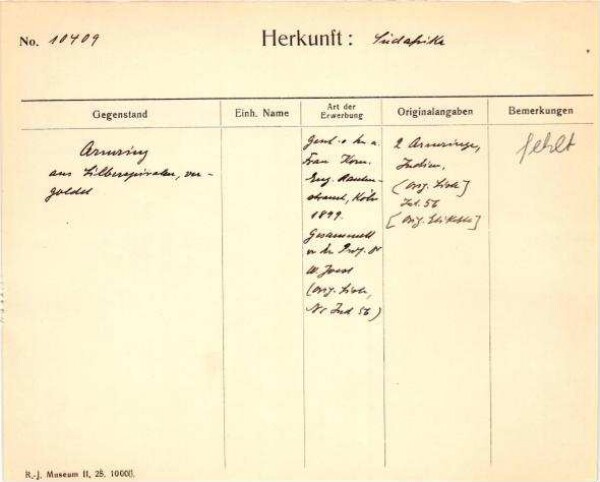 No. 10409
Herkunft: Südafrika
Gegenstand
Einh. Name
Art der Erwerbung
Originalangaben
Bemerkungen
Armring
aus Silberspiralen, ver-
goldet
Gesch. v. Hrn u.
Frau Kom.
Eug. Rauten-
strauch, Köln
1899.
Gesammelt
v. Hr. Prof. Dr
W. Joest
(Orig. Liste,
Nr Ind 56)
2 Armringe,
Indien.
(Orig. Liste]
Ind. 56
[Orig. Etikette]
fehlt
R.-J. Museum II, 28. 10000.